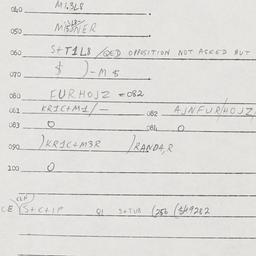 040 MI3L8
050 MISSNER
060 S+T1L8 /QED OPPOSITION NOT ASKED BUT
070 $ )-M $
080 FURHOJZ =082
081 KR1C+M1/— 082 AJNFUR/HOJZ
083 O 084 O
090 )KR1C+M3R )RANDA,R
100 O
S+C+IP 91 S+TUB (256 ($49282